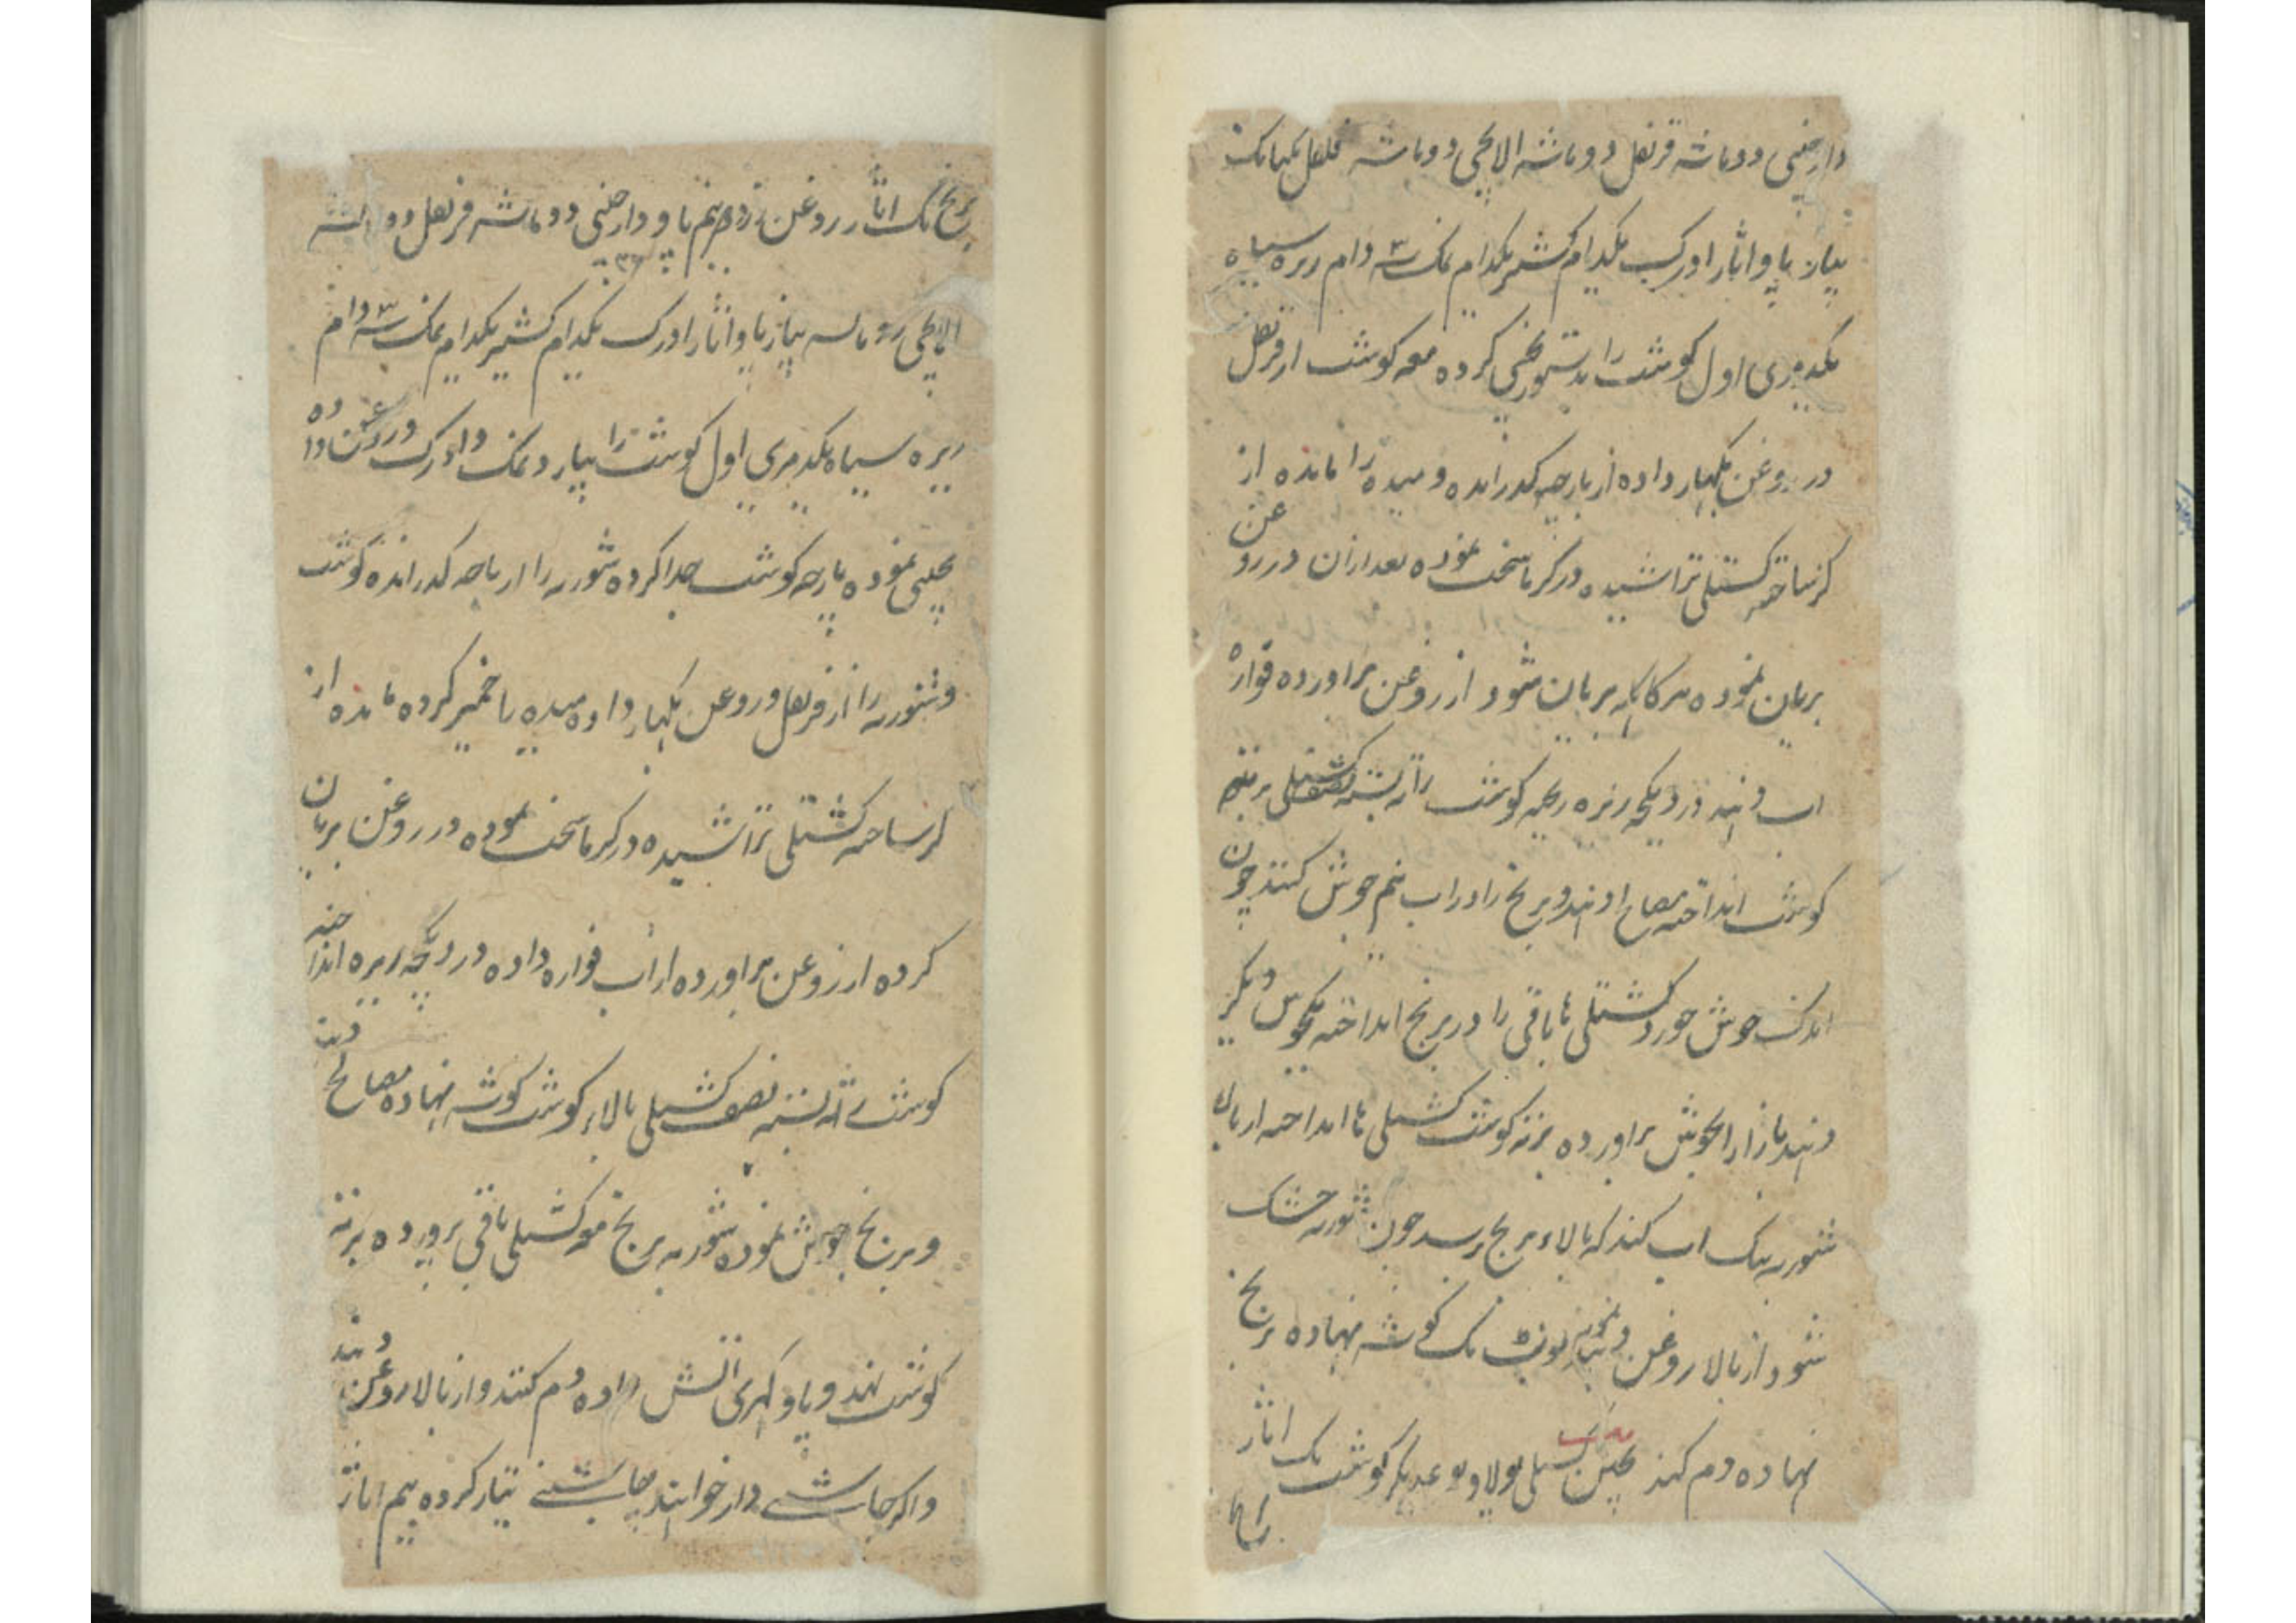 دارچینی دوماشه قرنفل دوماشه الایچی دوماشه فلفل یکماشه
پیاز پاو اثار ادرک یکدام کشنیز یکدام نمک سه دام زیره سیاه
یکدمری اول گوشت را بدستور یخنی کرده معه گوشت از قرنفل
در روغن بگهار داده از پارچه گذرانده و میده را مانده از
کرساخته کشتلی تراشیده در گرما سخت نموده بعد ازان در روغن
بریان نموده هرگاه که بریان شود از روغن براورده قواره
اب دهند در دیگچه ریزه ریخته گوشت را ته بسته کشتلی برته
گوشت انداخته مصالح دهند و برنج را در اب نیم جوش کنند چون
اندک جوش خورد کشتلی ها باقی را در برنج انداخته یکجوش دیگر
دهند باز از جوش براورده برته گوشت کشتلی ها انداخته از بالا
شوربه ینک اب کنند که بالاء برنج رسد چون شوربه خشک
شود از بالا روغن دهند گوشه نهاده برنج
نهاده دم کنند کشتلی پولاو نوعدیگر گوشت یک اثار
برنج یک اثار روغن زرد نیم پاو دارچینی دوماشه قرنفل دوماشه
الایچی دوماشه پیاز پاو اثار ادرک یکدام کشنیز یکدام نمک سه دام
زیره سیاه یکدمری اول گوشت را پیاز و نمک و ادرک و روغن داده
یخنی نموده پارچه گوشت جدا کرده شوربه را از پارچه گذرانده گوشت
و شوربه را از قرنفل و روغن بگهار داده میده را خمیر کرده مانده از
کرساخته کشتلی تراشیده در گرما سخت نموده در روغن بریان
کرده از روغن براورده از اب قواره داده در دیگچه زیره انداخته
گوشت ته بسته نصف کشتلی بالاء گوشت گوشه نهاده مصالح دهند
و برنج جوش نموده شوربه برنج معه کشتلی باقی براورده برته
گوشت نهند و پاو گهری اتش داده دم کنند و از بالا روغن دهند
و اگر چاشنی دار خواهند چاشنی تیار کرده نیم اثار